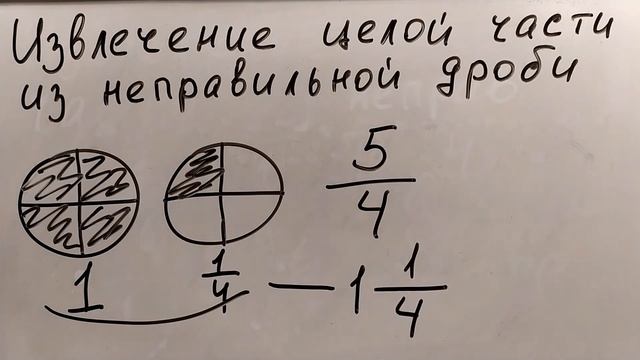 Извлечение целой части
из неправильной дроби
5/4
1 1/4 — 1 1/4